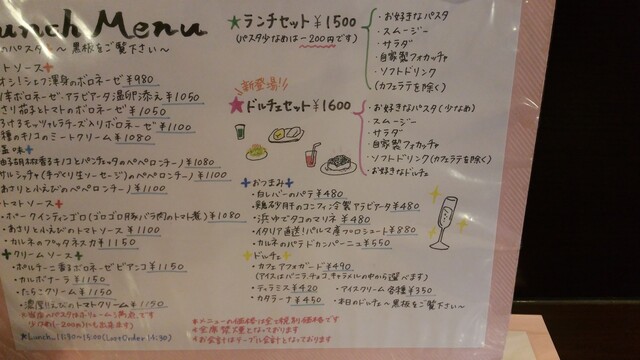 Lunch Menu
のパスタ ～黒板をご覧下さい～
トソース
シェフ渾身のボロネーゼ ¥980
ボロネーゼ・アラビアータ温卵添え ¥1050
茄子とトマトのボロネーゼ ¥1050
ろけるモッツァレラチーズ入りボロネーゼ ¥1100
種のキノコのミートクリーム ¥1080
キノコとパンチェッタのペペロンチーノ ¥1080
サルシッチャ(手づくり生ソーセージ)のペペロンチーノ ¥1100
あさりと小えびのペペロンチーノ ¥1100
トマトソース
・ポークインティンゴロ(ゴロゴロ月形バラ肉のトマト煮) ¥1080
・あさりと小えびのトマトソース ¥1100
・カルネのプッタネスカ ¥1150
クリームソース
・ポルチーニ香るボロネーゼビアンコ ¥1150
・カルボナーラ ¥1150
・たらこクリーム ¥1150
・濃厚えびのトマトクリーム ¥1150
(-200円)にも出来ます
★Lunch 11:30~15:00 (Last Order 14:30)
★ランチセット ¥1500
(パスタ少なめは-200円です)
・お好きなパスタ
・スムージー
・サラダ
・自家製フォカッチャ
・ソフトドリンク
(カフェラテを除く)
新登場!!
★ドルチェセット ¥1600
・お好きなパスタ(少なめ)
・スムージー
・サラダ
・自家製フォカッチャ
・ソフトドリンク(カフェラテを除く)
・お好きなドルチェ
おつまみ
・白レバーのパテ ¥480
・鶏砂肝のコンフィ 冷製アラビアータ ¥480
・浜ゆでタコのマリネ ¥480
・イタリア直送!パルマ産プロシュート ¥880
・カルネのパテドカンパーニュ ¥550
ドルチェ
・カフェアフォガード ¥490
(アイスはバニラ、チョコ、キャラメルの中から選べます)
・ティラミス ¥420
・アイスクリーム各種 ¥350
・カタラーナ ¥450
・本日のドルチェ～黒板をご覧下さい～
※メニューの価格は全て税別価格です
※全席禁煙となっております
※お会計はテーブル会計となっております